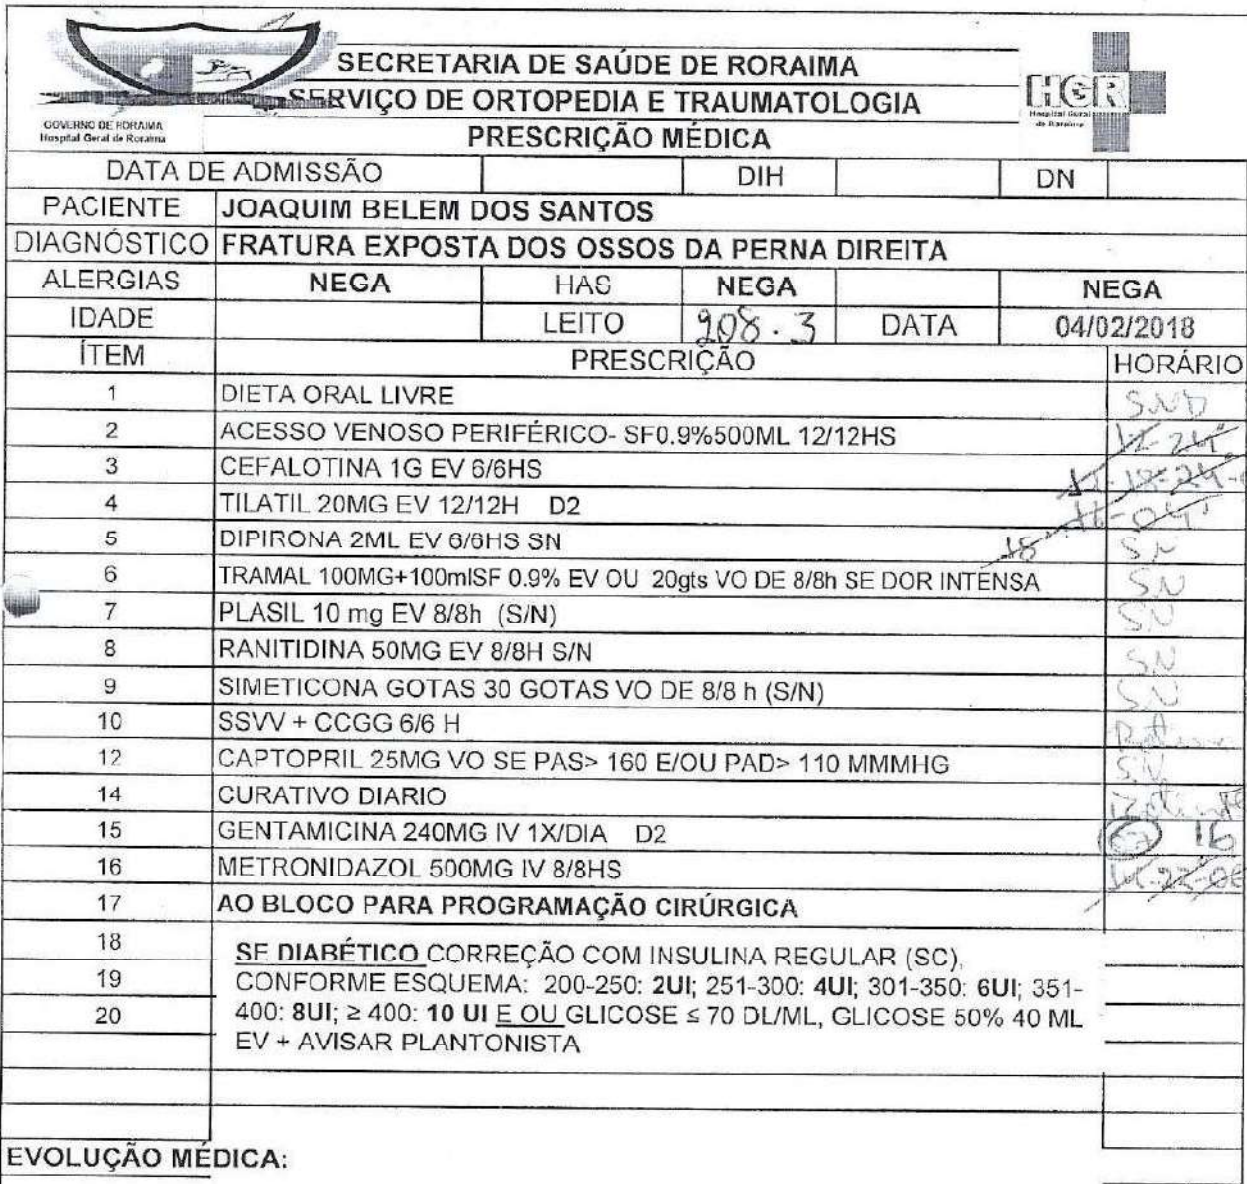 SECRETARIA DE SAÚDE DE RORAIMA
SERVIÇO DE ORTOPEDIA E TRAUMATOLOGIA
PRESCRIÇÃO MÉDICA
GOVERNO DE RORAIMA
Hospital Geral de Roraima
HGR
Hospital Geral
de Roraima
DATA DE ADMISSÃO DIH DN
PACIENTE JOAQUIM BELEM DOS SANTOS
DIAGNÓSTICO FRATURA EXPOSTA DOS OSSOS DA PERNA DIREITA
ALERGIAS NEGA HAS NEGA NEGA
IDADE LEITO 208.3 DATA 04/02/2018
ÍTEM PRESCRIÇÃO HORÁRIO
1 DIETA ORAL LIVRE SND
2 ACESSO VENOSO PERIFÉRICO- SF0.9%500ML 12/12HS 12-24
3 CEFALOTINA 1G EV 6/6HS 18-24
4 TILATIL 20MG EV 12/12H D2 04
5 DIPIRONA 2ML EV 6/6HS SN 18 SN
6 TRAMAL 100MG+100mlSF 0.9% EV OU 20gts VO DE 8/8h SE DOR INTENSA SN
7 PLASIL 10 mg EV 8/8h (S/N) SN
8 RANITIDINA 50MG EV 8/8H S/N SN
9 SIMETICONA GOTAS 30 GOTAS VO DE 8/8 h (S/N) SN
10 SSVV + CCGG 6/6 H
12 CAPTOPRIL 25MG VO SE PAS> 160 E/OU PAD> 110 MMMHG SN
14 CURATIVO DIARIO
15 GENTAMICINA 240MG IV 1X/DIA D2 16
16 METRONIDAZOL 500MG IV 8/8HS 22-06
17 AO BLOCO PARA PROGRAMAÇÃO CIRÚRGICA
18
19
20
SE DIABÉTICO CORREÇÃO COM INSULINA REGULAR (SC),
CONFORME ESQUEMA: 200-250: 2UI; 251-300: 4UI; 301-350: 6UI; 351-
400: 8UI; ≥ 400: 10 UI E OU GLICOSE ≤ 70 DL/ML, GLICOSE 50% 40 ML
EV + AVISAR PLANTONISTA
EVOLUÇÃO MÉDICA: